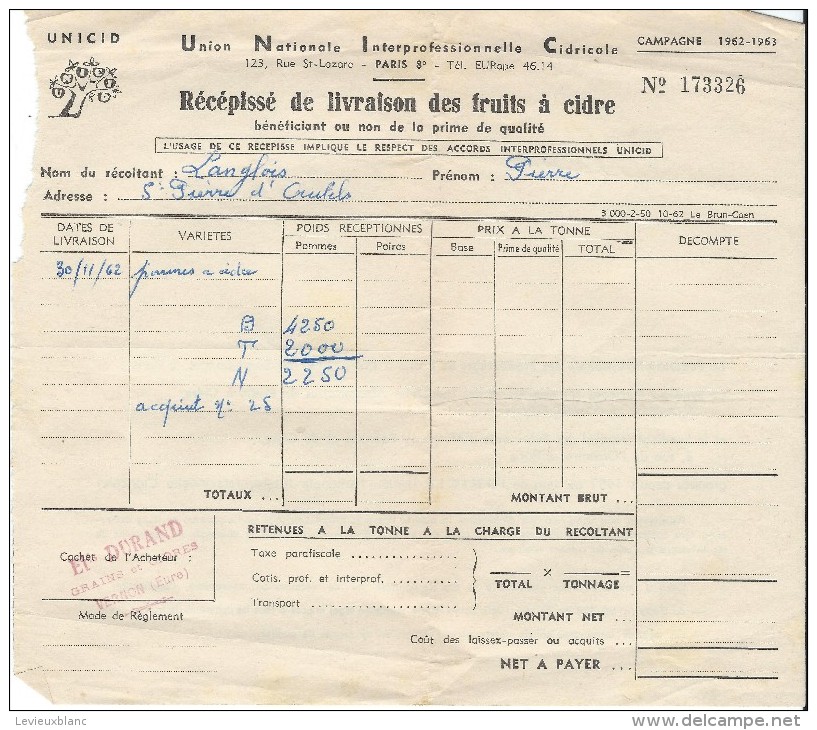 UNICID
Union Nationale Interprofessionnelle Cidricole
CAMPAGNE 1962-1963
123, Rue St-Lazare - PARIS 8e - Tél. EURope 46.14
Nº 173326
Récépissé de livraison des fruits à cidre
bénéficiant ou non de la prime de qualité
L'USAGE DE CE RECEPISSE IMPLIQUE LE RESPECT DES ACCORDS INTERPROFESSIONNELS UNICID
Nom du récoltant : Langlois Prénom : Pierre
Adresse : St Pierre d'
3 000-2-50 10-62 Le Brun-Caen
DATES DE LIVRAISON VARIETES POIDS RECEPTIONNES PRIX A LA TONNE DECOMPTE
Pommes Poires Base Prime de qualité TOTAL
30/11/62 pommes a cidre
B 4250
T 2000
N 2250
acquit nº 25
TOTAUX ... MONTANT BRUT ...
RETENUES A LA TONNE A LA CHARGE DU RECOLTANT
Cachet de l'Acheteur :
Ets DURAND
GRAINS et CIDRES
VERNON (Eure)
Taxe parafiscale ...............
Cotis. prof. et interprof. ...........
TOTAL × TONNAGE =
Transport ...............
Mode de Règlement
MONTANT NET ...
Coût des laissez-passer ou acquits ...
NET A PAYER ...
Levieuxblanc
www.delcampe.net